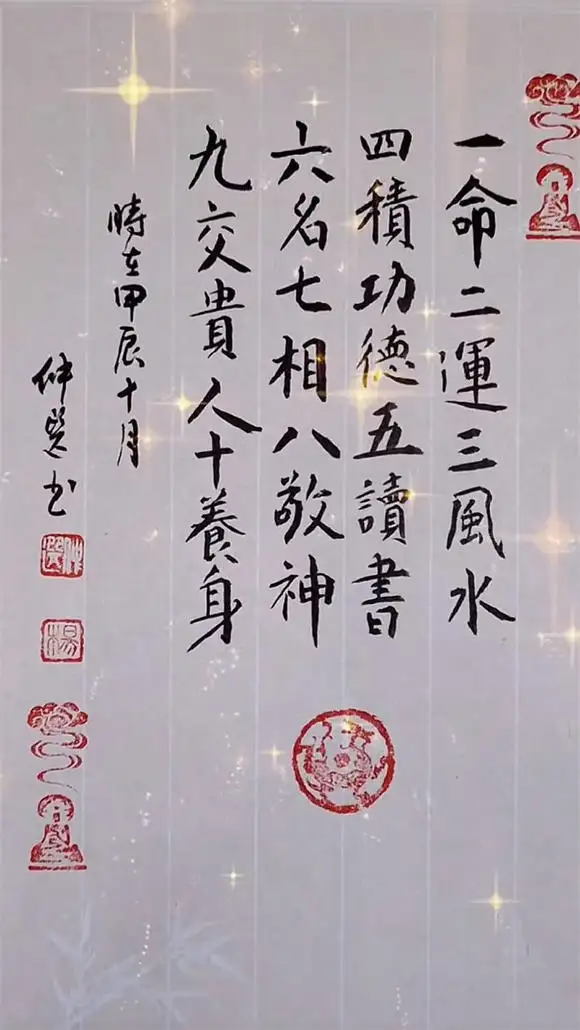 一命二運三風水
四積功德五讀書
六名七相八敬神
九交貴人十養身
時在甲辰十月
仲賢书
楊